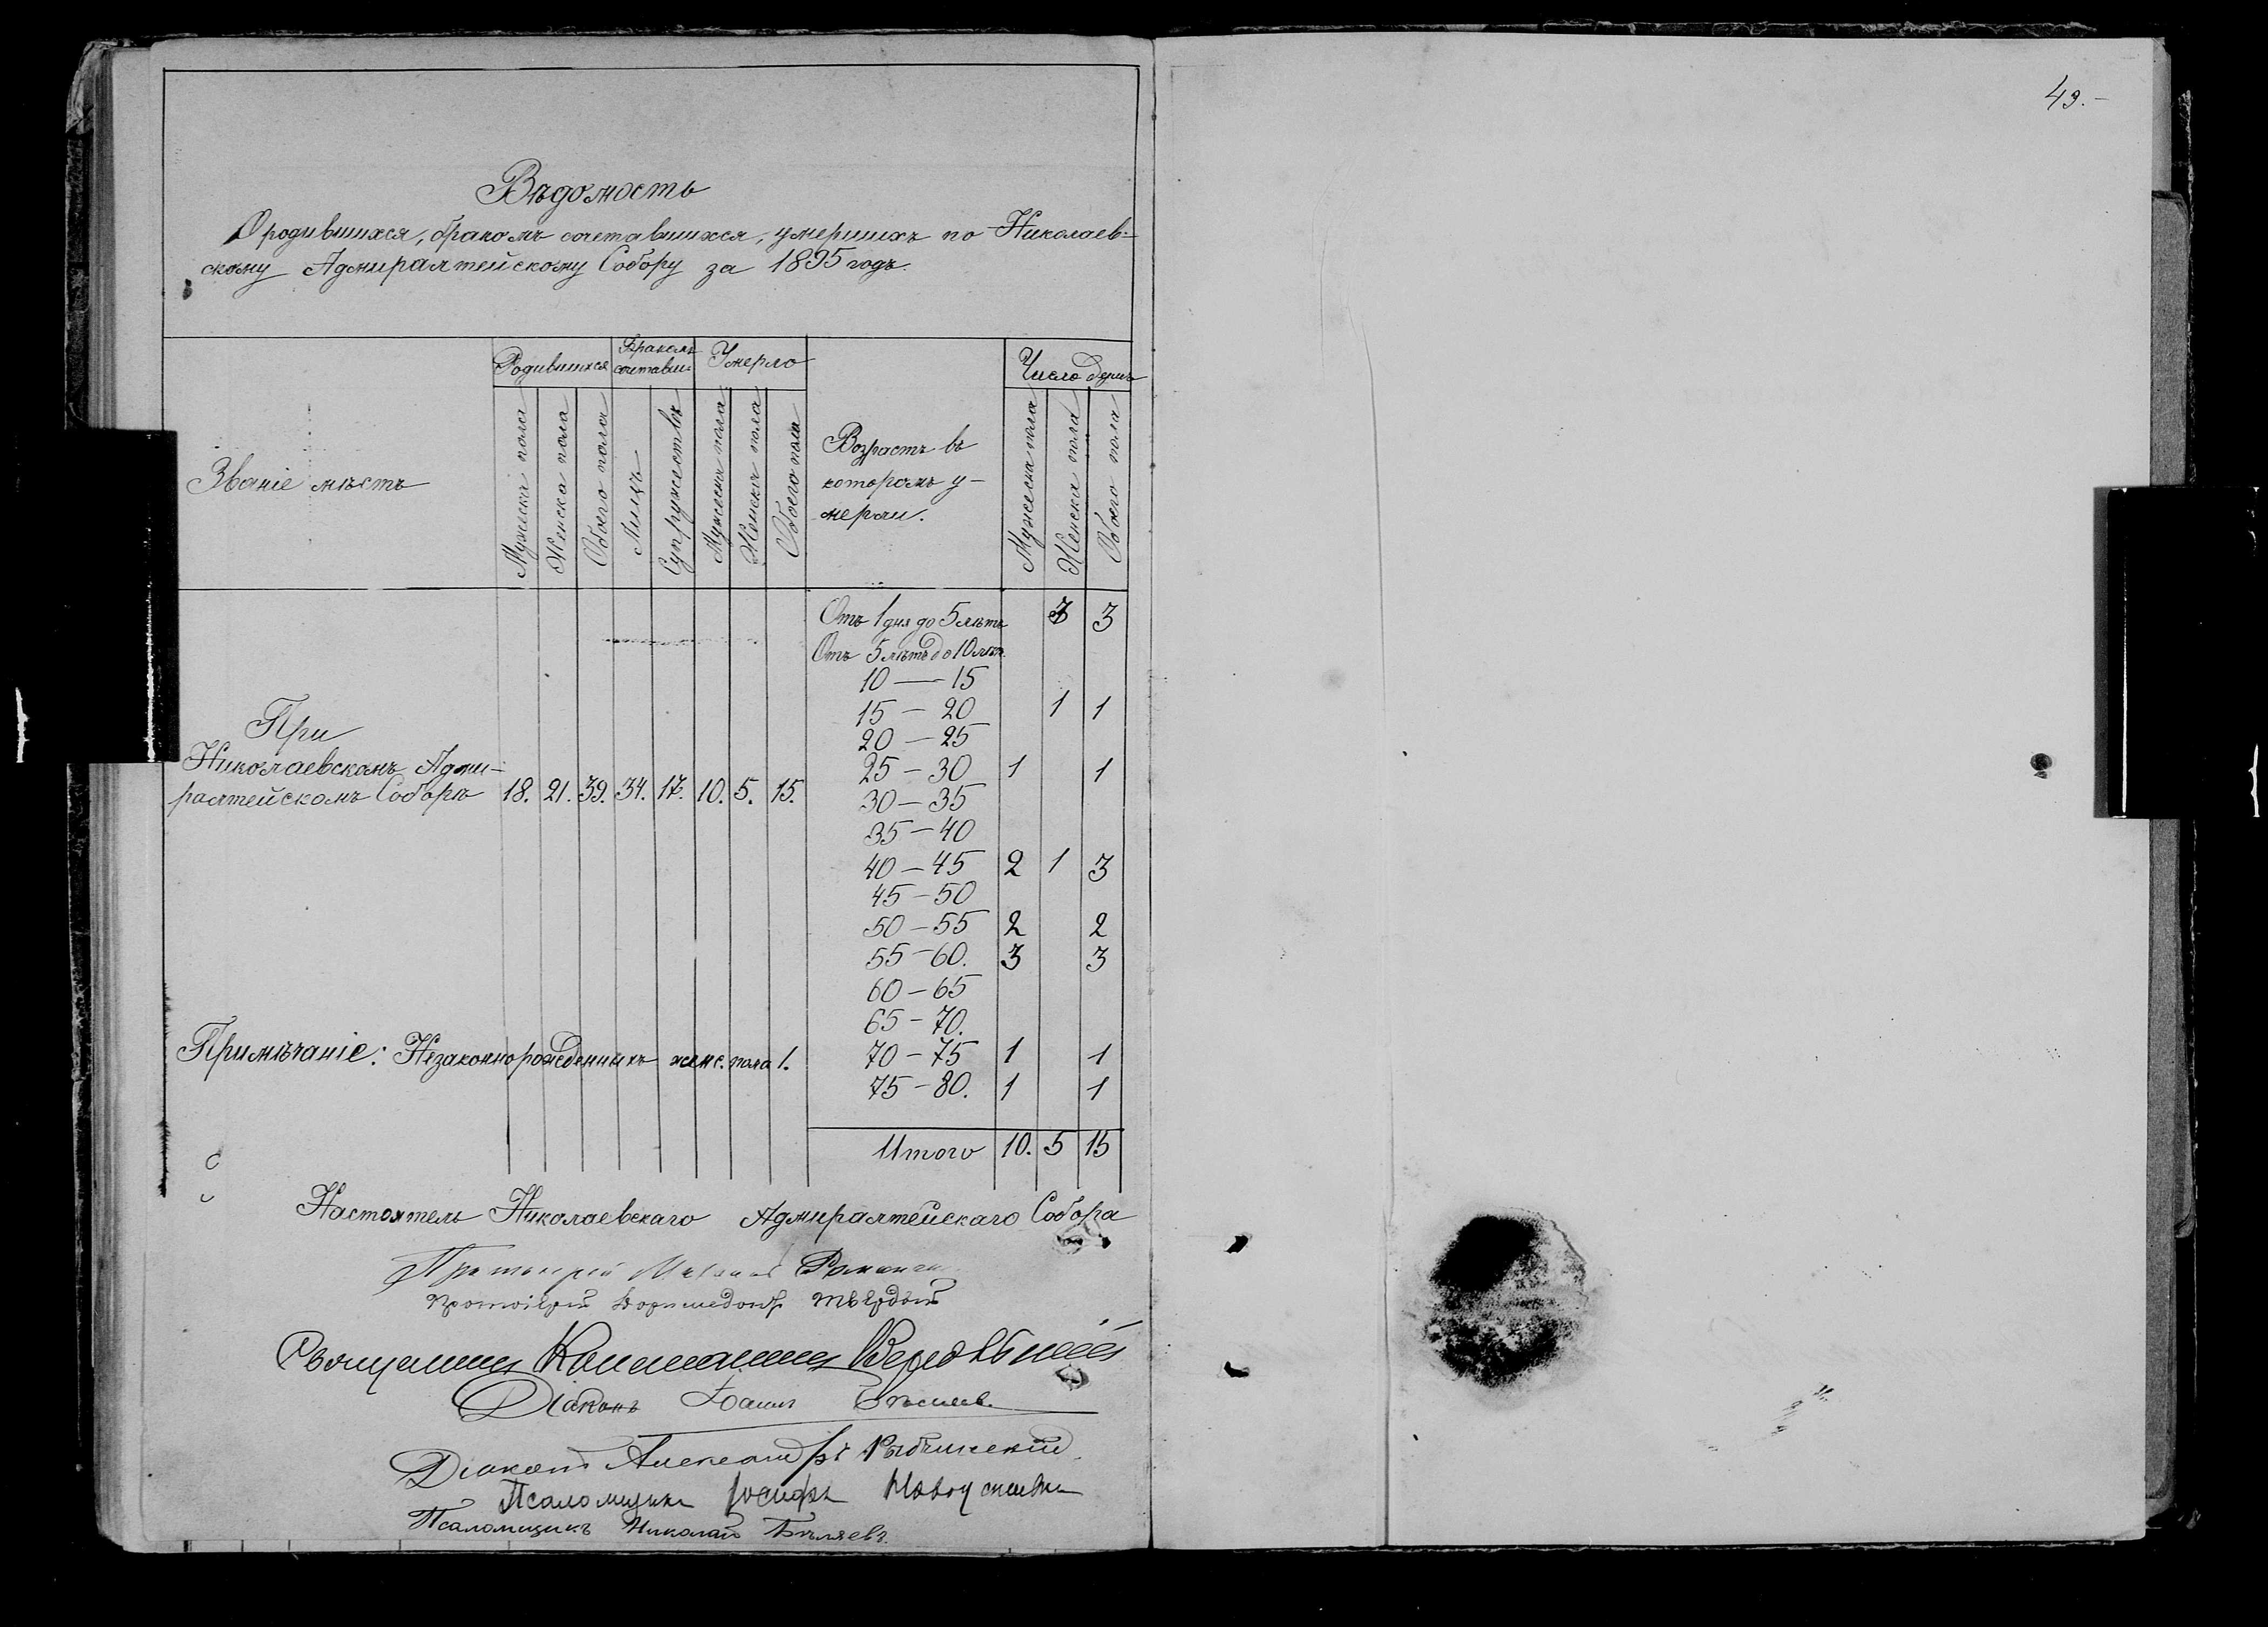 49.-
Вѣдомость
О родившихся, бракомъ сочетавшихся, умершихъ по Николаев-
скому Адмиралтейскому Собору за 1895 годъ.
Званіе мѣстъ
Родившихся
Бракомъ
сочетавш:
Умерло
Возрастъ въ
которомъ у-
мерли.
Число душъ
Мужеска пола
Женска пола
Обоего пола
Лицъ
Супружествъ
Мужеска пола
Женска пола
Обоего пола
Мужеска пола
Женска пола
Обоего пола
Отъ 1 дня до 5 лѣтъ 3 3
Отъ 5 лѣтъ до 10 лѣт.
10 — 15
15 — 20 1 1
20 — 25
25 — 30 1 1
30 — 35
35 — 40
40 — 45 2 1 3
45 — 50
50 — 55 2 2
55 — 60. 3 3
60 — 65
65 — 70.
70 — 75 1 1
75 — 80. 1 1
Итого 10. 5 15
При
Николаевскомъ Адми-
ралтейскомъ Соборѣ 18. 21. 39. 34. 17. 10. 5. 15.
Примѣчаніе: Незаконнорожденныхъ женс. пола 1.
Настоятель Николаевскаго Адмиралтейскаго Собора
Протоіерей
Протоіерей Твердый
Священникъ Константинъ
Діаконъ
Діаконъ Александръ
Псаломщикъ Іосифъ
Псаломщикъ Николай Бѣляевъ.